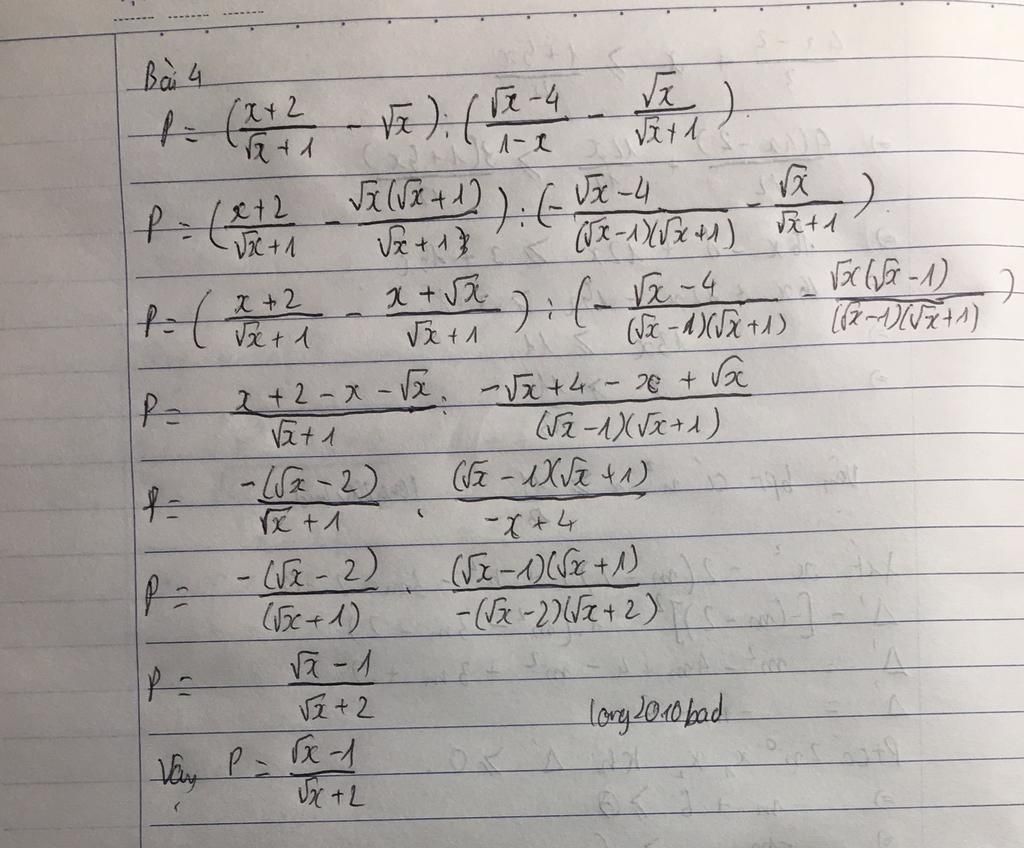 Bài 4
P = (x+2/√x+1 - √x) : (√x-4/1-x - √x/√x+1).
P = (x+2/√x+1 - √x(√x+1)/√x+1) : (-√x-4/(√x-1)(√x+1) - √x/√x+1)
P = (x+2/√x+1 - x+√x/√x+1) : (-√x-4/(√x-1)(√x+1) - √x(√x-1)/(√x-1)(√x+1))
P = x+2-x-√x/√x+1 : -√x+4-x+√x/(√x-1)(√x+1)
P = -(√x-2)/√x+1 . (√x-1)(√x+1)/-x+4
P = -(√x-2)/(√x+1) . (√x-1)(√x+1)/-(√x-2)(√x+2)
P = √x-1/√x+2
long2010bad
Vậy P = √x-1/√x+2